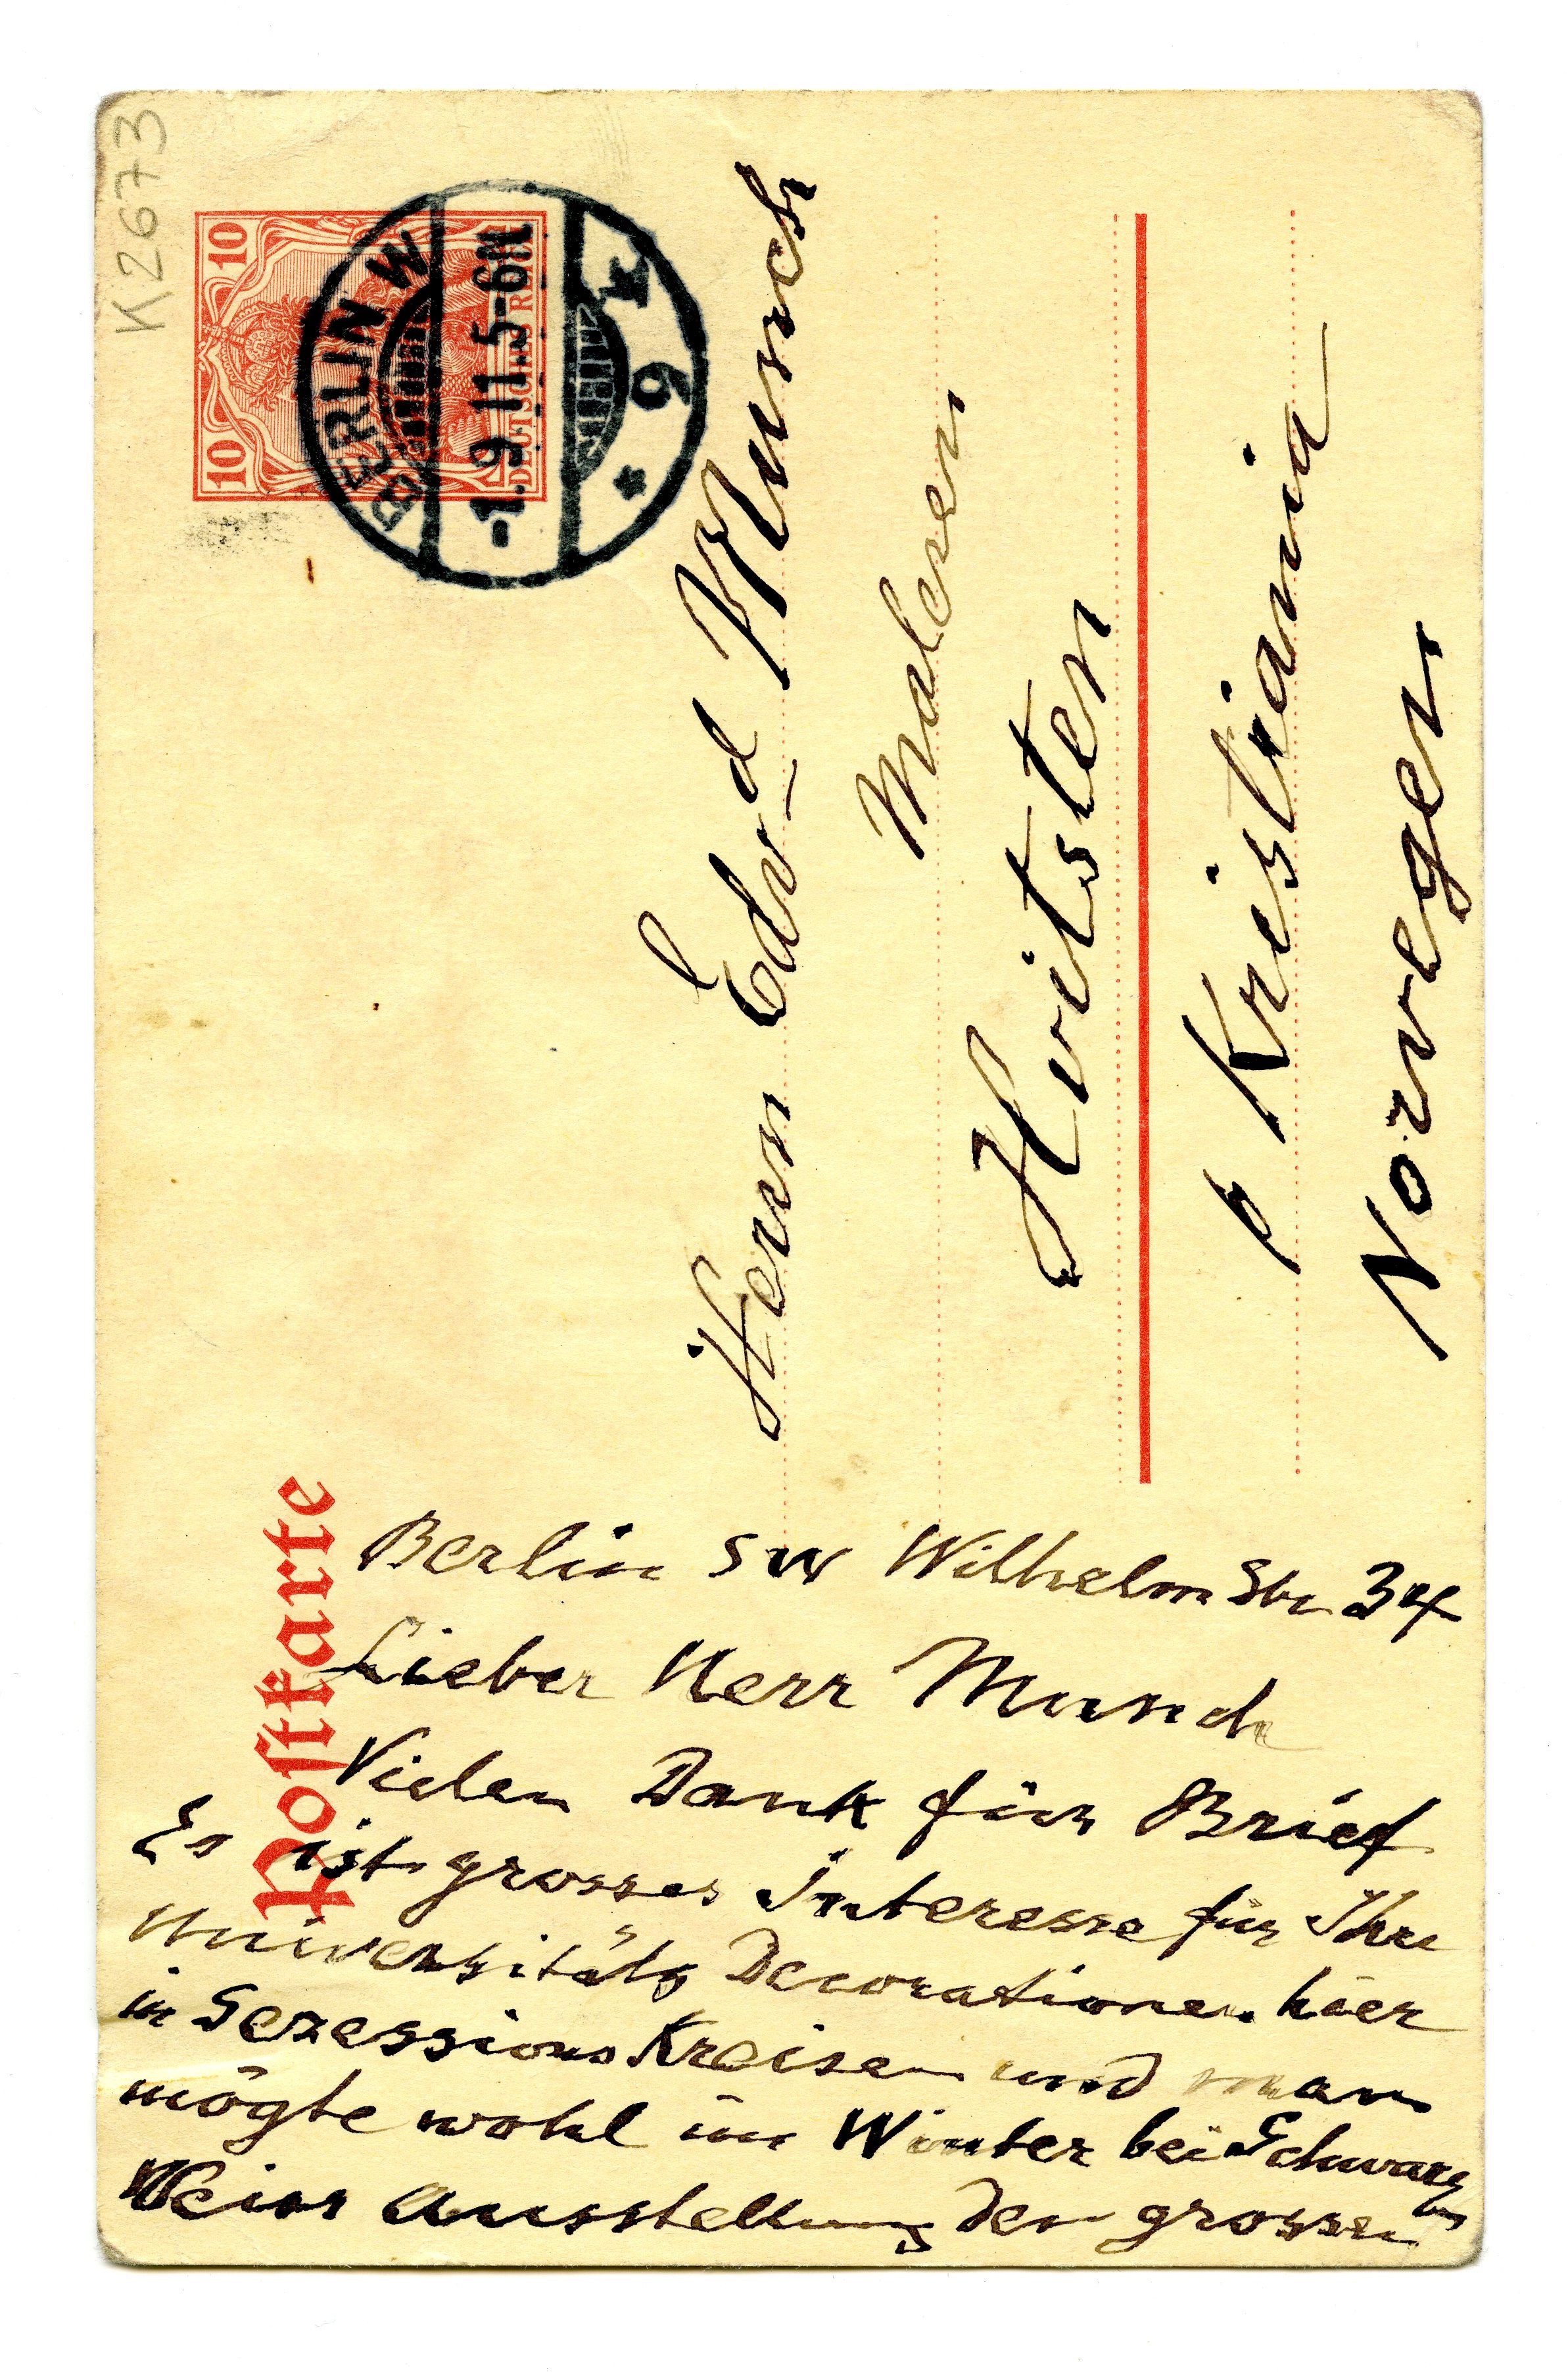 K2673
10 10
DEUTSCHES REICH
BERLIN W
-1.9.11.5-6N
* 9 k
Postkarte
Herrn Edv_d Munch
Maleren
Hvitsten
p Kristiania
Norwegen
Berlin SW Wilhelm Str 34
Lieber Herr Munch
Vielen Dank für Brief
Es ist grosses Interesse für Ihre
Universitäts Decorationen hier
in Sezessions Kreisen und man
mögte wohl im Winter bei Schwarz
Weiss Ausstellung den grossen